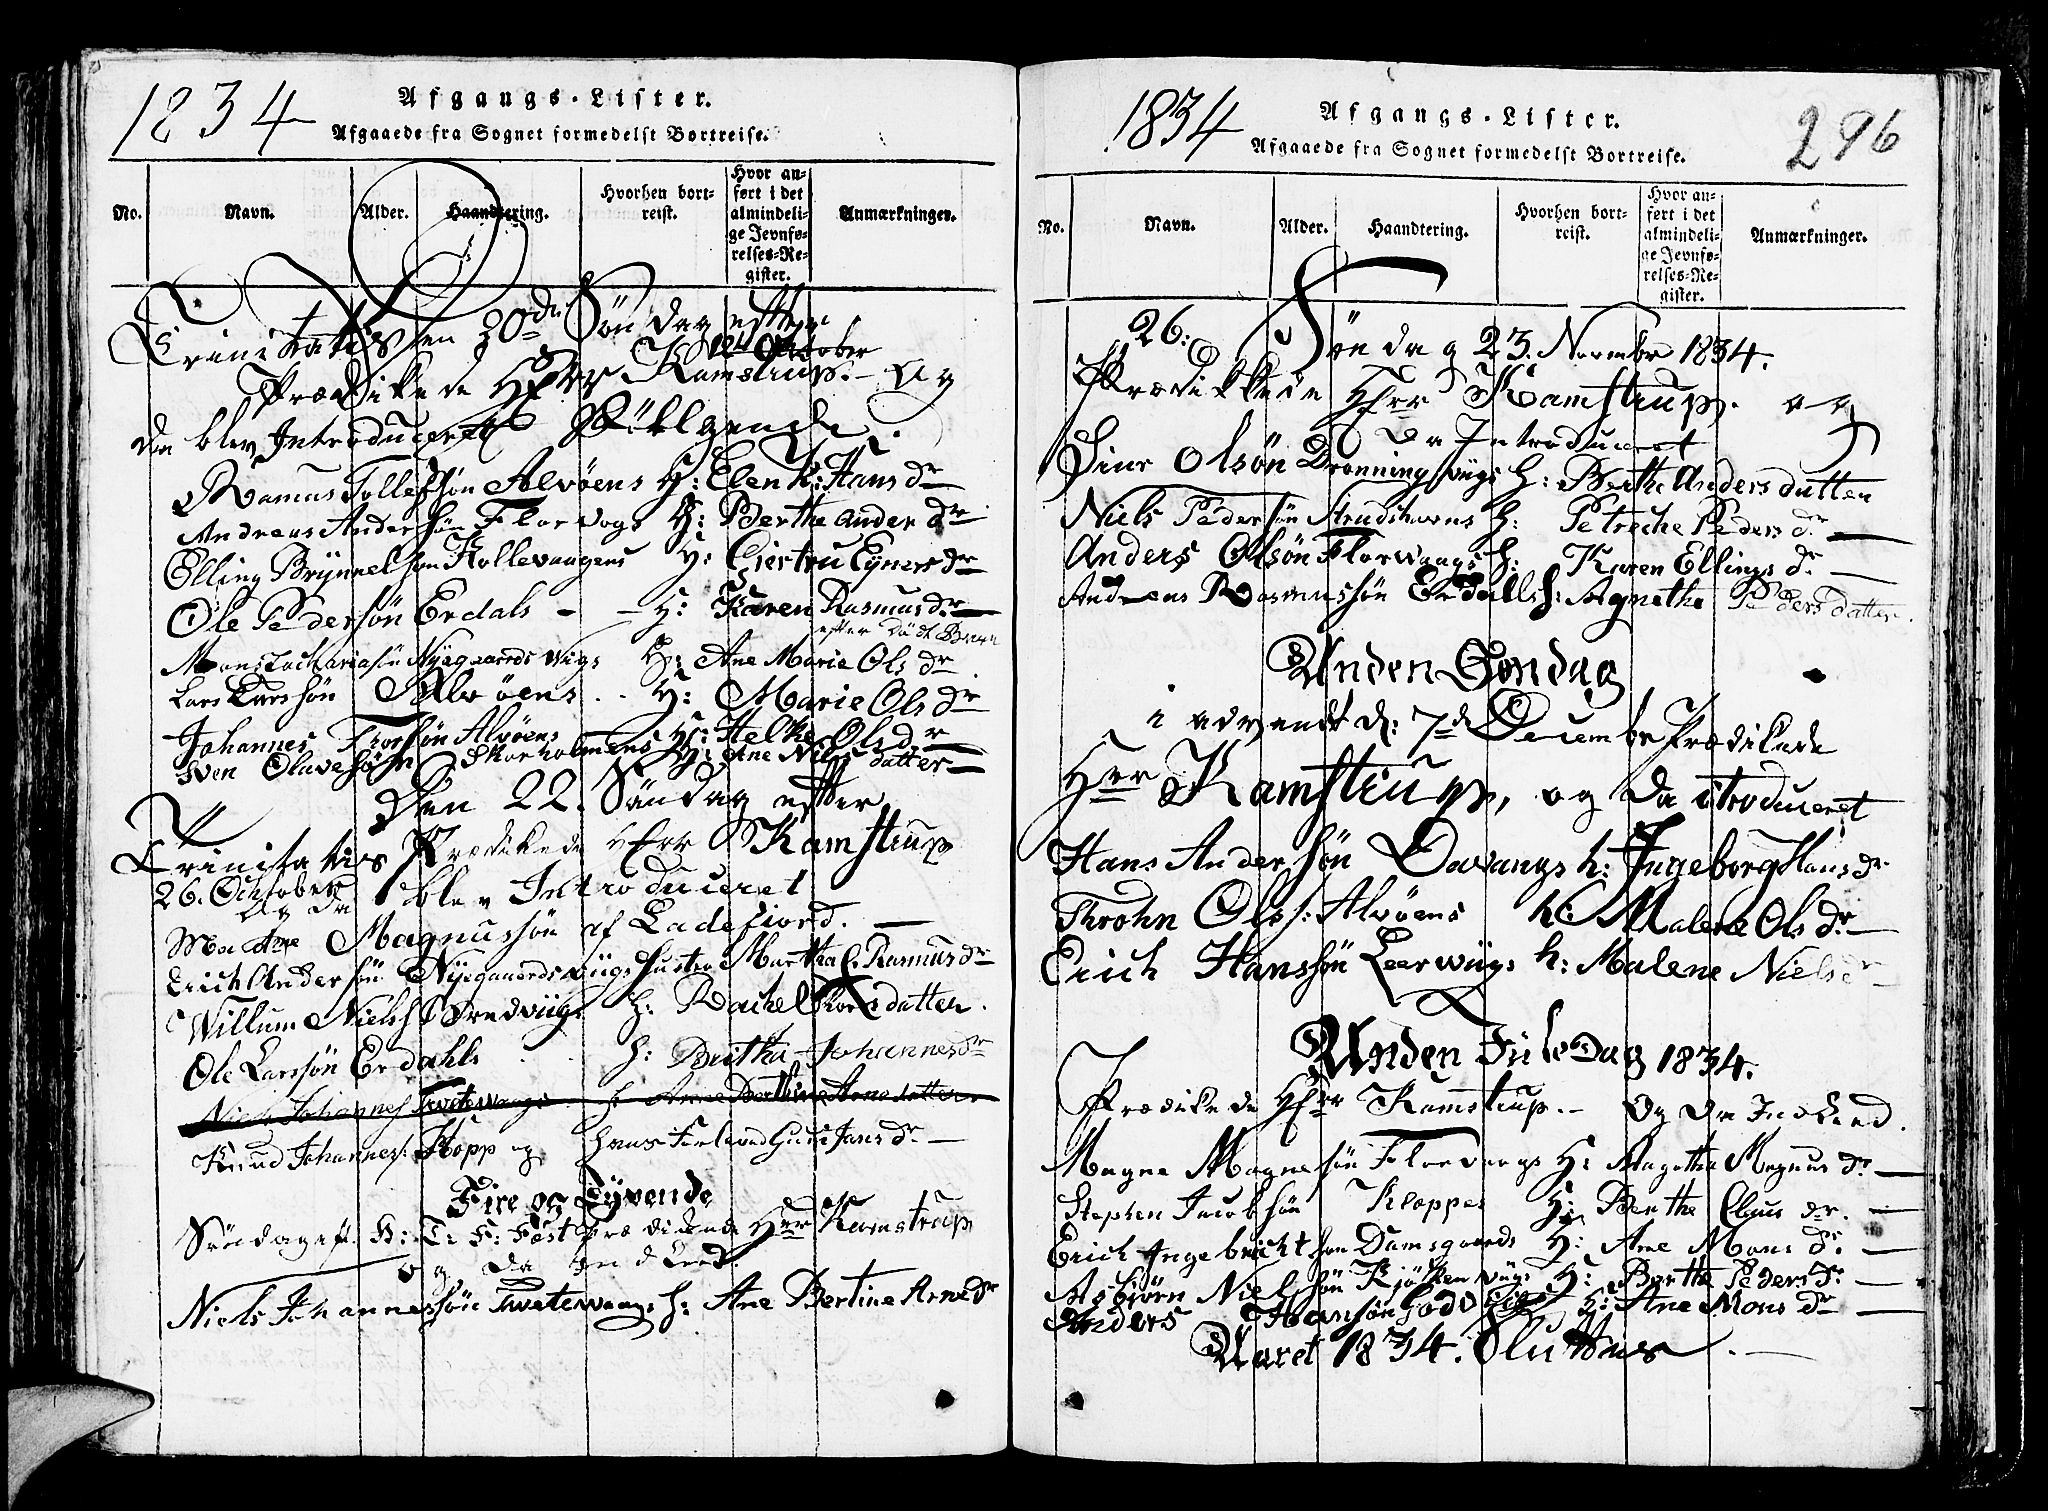 1834
Afgangs-Lister.
Afgaaede fra Sognet formedelst Bortreise.
No.
Navn.
Alder.
Haandtering.
Hvorhen bort-
reist.
Hvor an-
ført i det
almindeli-
ge Jevnfø-
relses-Re-
gister.
Anmærkninger.
Den 20de Søndag efter
Trinitatis 12 October
Prædikede HErr Kamstrup. og
da blev Introduceret Følgende.
Rasmus Tollefsøn Alvøens H: Elen K: Hansdr
Andreas Andersøn Florvogs H: Berthe Anderdr
Elling Brynnelsøn Kollevaagens H: Giertru Eynersdr
Ole Pedersøn Erdals - - H: Karen Rasmusdr
efter Død Barn
Mons Zachariasøn Nyegaardsvigs H: Ane Marie Olsdr
Lars Larssøn Alvøens . . H: Marie Olsdr
Johannes Thorsøn Alvøens H: Helke Olsdr
Sven Olavesøn Skorholmens H: Ane Nielsdatter
Den 22. Søndag efter
Trinitatis Prædikede HErr Kamstrup
26. October
og da blev Introduceret
Magnussøn af Ladefiord.
Erich Andersøn Nyegaardsviigs hustro Martha C. Rasmusdr
Willum Niels h: Rachel datter.
Ole Larssøn Erdahls h: Britha Johannesdr
Niels Johannes Tvetevaags h: Anne Bertine Arnedatter
Knud Johannes: Hopp og hans
Fire og Tyvende
Søndag eft. H: T: F: Fest Prædikede Herr Kamstrup
og da Indled.
Niels Johannessøn Tvetevaags h: Ane Bertine Arnedr
1834
Afgangs-Lister.
296
Afgaaede fra Sognet formedelst Bortreise.
No.
Navn.
Alder.
Haandtering.
Hvorhen bort-
reist.
Hvor an-
ført i det
almindeli-
ge Jevnfø-
relses-Re-
gister.
Anmærkninger.
26: Søndag 23. November 1834.
Prædikkede HErr Kamstrup. og
da Introduceret
Olsøn Dronningsviigs H: Berthe Andersdatten
Niels Pedersøn Strudshavns h: Petreche Pedersdr
Anders Olsøn Florvaags h: Karen Ellingsdr
Andreas Rasmussøn Erdalls h: Agnethe Pedersdatter.
Anden Søndag
i advendt d: 7de December Prædikede
Herr Kamstrup, og da itroduceret
Hans Andersøn Davangs h: Ingeborg Hansdr
Throhn Ols: Alvøens h: Malene Olsdr
Erich Hanssøn Leerwiigs h: Malene Nielsdr
Anden JuleDag 1834.
Prædikede HErr Kamstrup. - Og da Indleed.
Magne Magnesøn Florvaags H: Magnusdr
Stephen Jacobsøn Kloppes H: Berthe Clausdr.
Erich Ingebricht søn Damsgaards H: Ane Monsdr.
Asbiørn Nielsøn Kjøkkenviigs H: Berthe Pedersdr.
Anders Hansøn Godviigs H: Ane Monsdr
Aaret 1834. Sluttes.